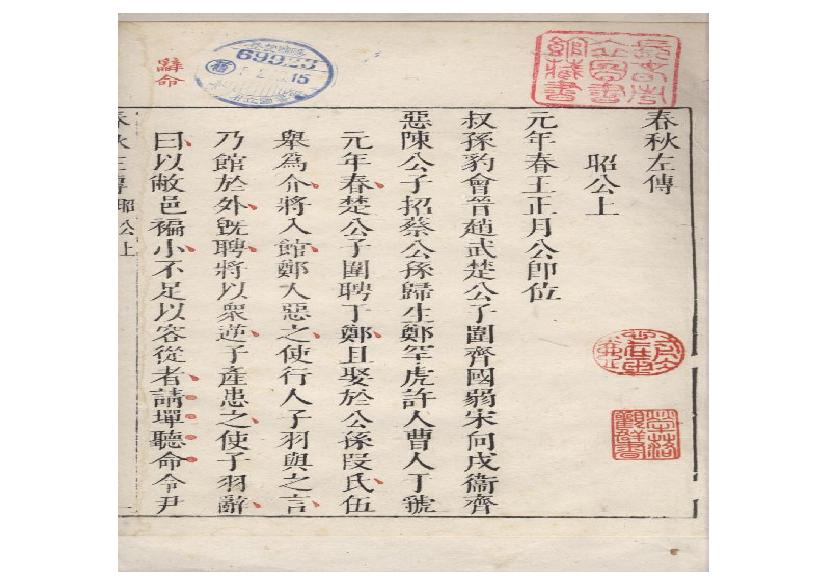 春秋左傳
昭公上
元年春王正月公卽位
叔孫豹會晉趙武楚公子圍齊國弱宋向戌衞齊
惡陳公子招蔡公孫歸生鄭罕虎許人曹人于虢
元年春楚公子圍聘于鄭且娶於公孫段氏伍
舉爲介將入館鄭人惡之使行人子羽與之言
乃館於外旣聘將以衆逆子產患之使子羽辭
辭命
曰以敝邑褊小不足以容從者請墠聽命令尹
春秋左傳昭公上
69923
15